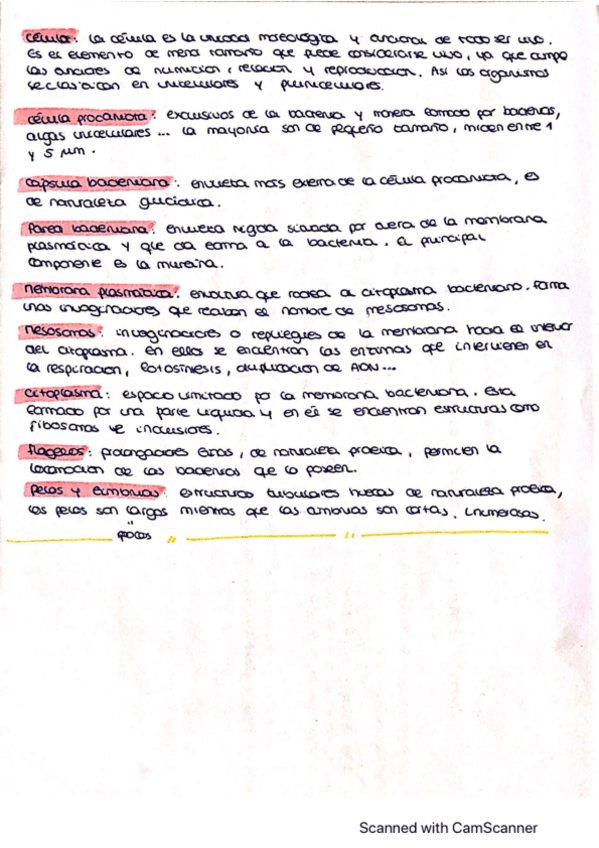 célula: La célula es la unidad morfológica y funcional de todo ser vivo.
Es el elemento de menor tamaño que puede considerarse vivo, ya que cumple
las funciones de nutrición, relación y reproducción. Así los organismos
se clasifican en unicelulares y pluricelulares.
célula procariota: exclusivos de la bacteria y monera formado por bacterias,
algas unicelulares... la mayoría son de pequeño tamaño, miden entre 1
y 5 µm.
cápsula bacteriana: envuelta más externa de la célula procariota, es
de naturaleza glucídica.
Pared bacteriana: envuelta rígida situada por fuera de la membrana
plasmática y que da forma a la bacteria. El principal
componente es la mureína.
Membrana plasmática: envoltura que rodea al citoplasma bacteriano. Forma
unas invaginaciones que reciben el nombre de mesosomas.
Mesosomas: invaginaciones o repliegues de la membrana hacia el interior
del citoplasma. En ellos se encuentran las enzimas que intervienen en
la respiración, fotosíntesis, duplicación de ADN...
Citoplasma: espacio limitado por la membrana bacteriana. Esta
formado por una parte líquida y en él se encuentran estructuras como
ribosomas e inclusiones.
flagelos: prolongaciones finas, de naturaleza proteica, permiten la
locomoción de las bacterias que lo poseen.
Pelos y fimbrias: estructuras tubulares huecas de naturaleza proteica,
los pelos son largos mientras que las fimbrias son cortas, numerosas.
pocos
Scanned with CamScanner